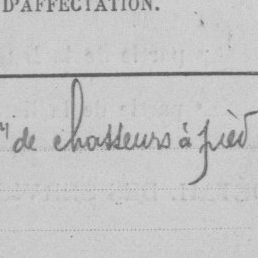 D'AFFECTATION.
de chasseurs à pied